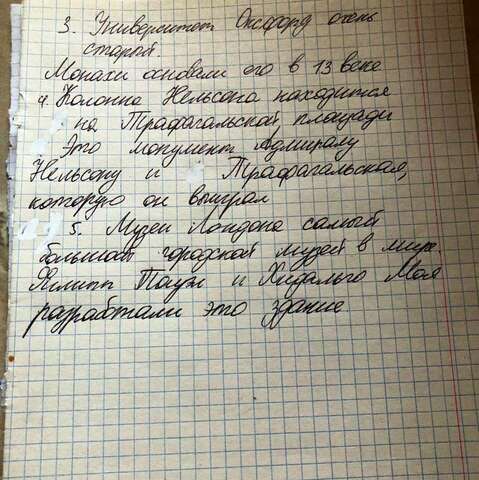 3. Университет Оксфорд очень
старый
Монахи основали его в 13 веке
4. Колонна Нельсона находится
на Трафагальской площади
Это монумент Адмиралу
Нельсону и Трафагальская,
которую он выиграл
5. Музей Лондона самый
большой городской музей в мире.
Филипп Пауэл и Хидальго Моя
разработали это здание.